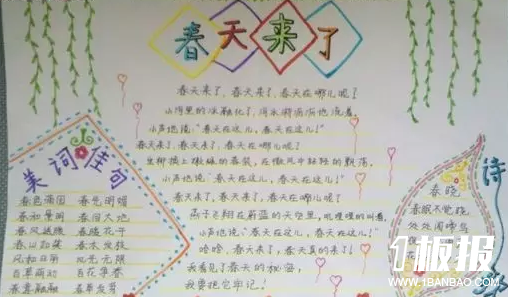 春天来了
春天来了，春天来了，春天在哪儿呢？
小河里的冰融化了，河水哗哗哗地流着，
小声地说："春天在这儿，春天在这儿！"
春天来了，春天来了，春天在哪儿呢？
小声地说"春天在这儿，春天在这儿！"
春天来了，春天来了，春天在哪儿呢？
燕子飞翔在蔚蓝的天空里，叽哩哩的叫着，
小声地说："春天在这儿，春天在这儿！"
哈哈，春天来了，春天真的来了！
我看见了春天的秘密，
我要把它牢记！
美词佳句
春色满园 春光明媚
春和景明 春回大地
春风拂面 春暖花开
春山如笑
风和日丽
百草萌动 百花争春
诗
春晓
春眠不觉晓
处处闻啼鸟
1板报
WWW.1BANBAO.COM